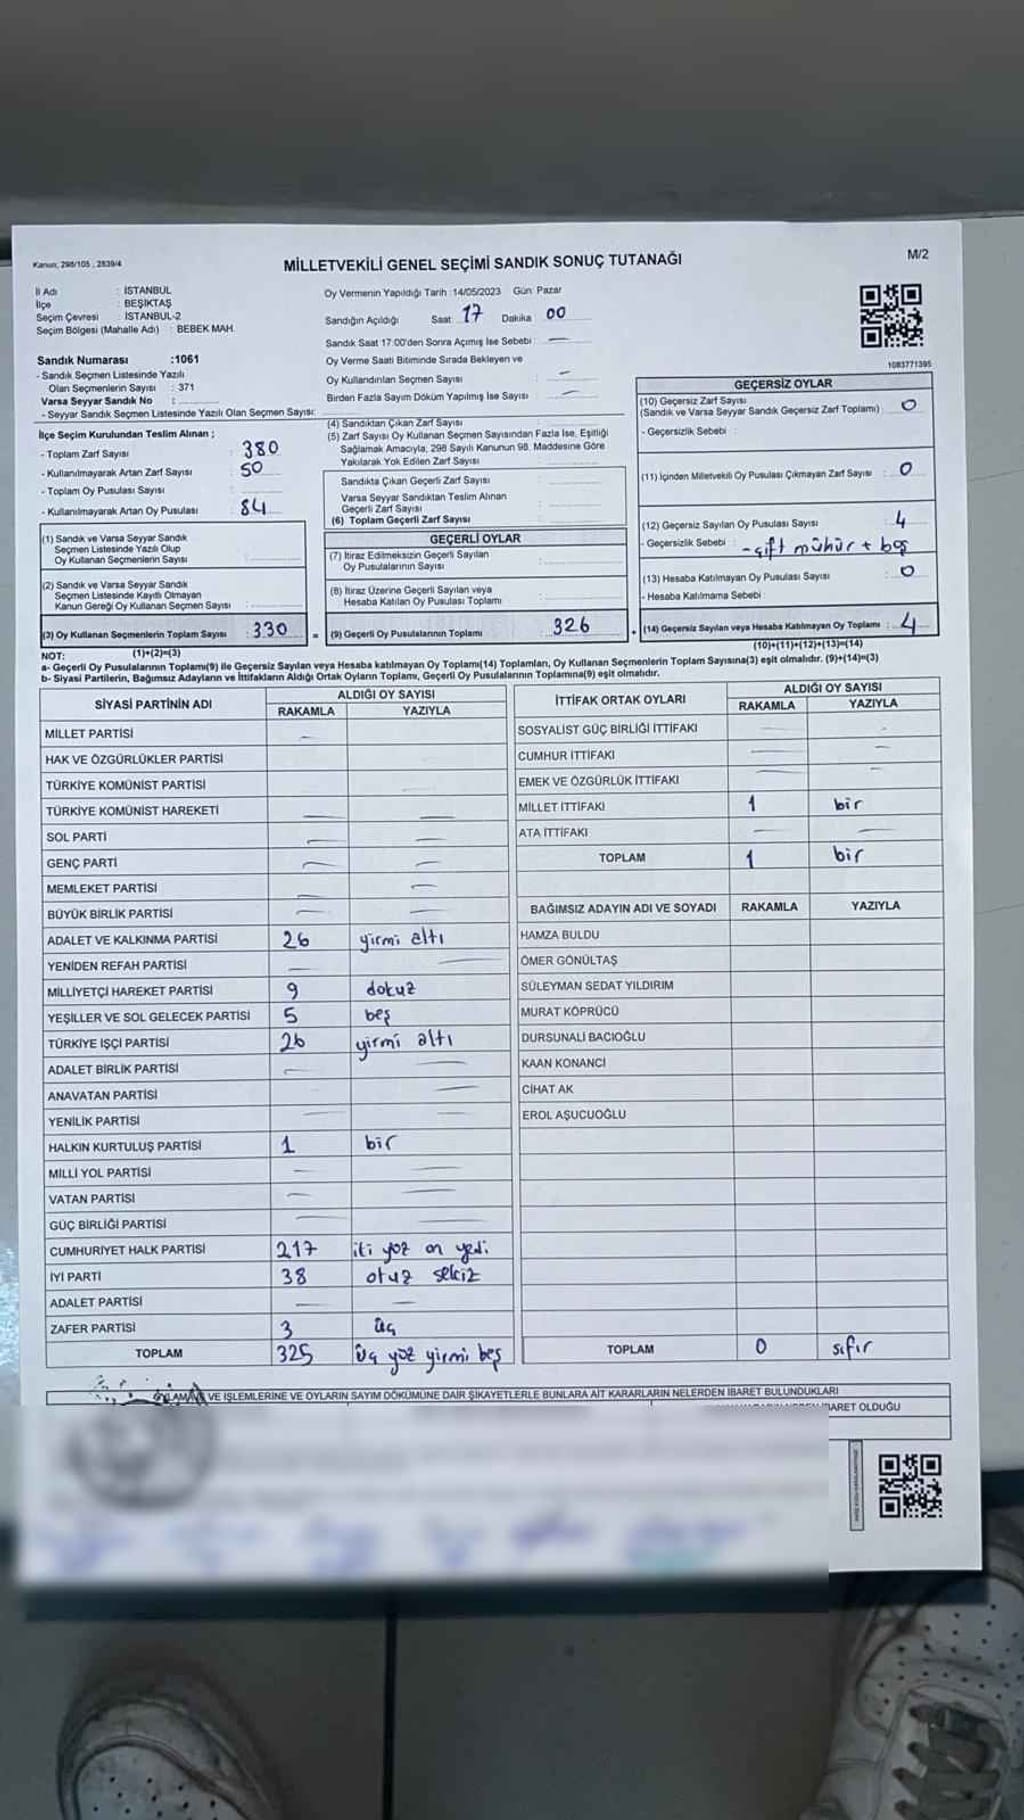 Kanun; 298/105 , 2839/4
MİLLETVEKİLİ GENEL SEÇİMİ SANDIK SONUÇ TUTANAĞI
M/2
İl Adı : İSTANBUL
İlçe : BEŞİKTAŞ
Seçim Çevresi : İSTANBUL-2
Seçim Bölgesi (Mahalle Adı) : BEBEK MAH.
Sandık Numarası :1061
- Sandık Seçmen Listesinde Yazılı
Olan Seçmenlerin Sayısı : 371
Varsa Seyyar Sandık No :
- Seyyar Sandık Seçmen Listesinde Yazılı Olan Seçmen Sayısı:
Oy Vermenin Yapıldığı Tarih :14/05/2023 Gün Pazar
Sandığın Açıldığı Saat 17 Dakika 00
Sandık Saat 17:00'den Sonra Açımış İse Sebebi : —
Oy Verme Saati Bitiminde Sırada Bekleyen ve
Oy Kullandırılan Seçmen Sayısı : —
Birden Fazla Sayım Döküm Yapılmış İse Sayısı : —
1083771395
İlçe Seçim Kurulundan Teslim Alınan ;
- Toplam Zarf Sayısı : 380
- Kullanılmayarak Artan Zarf Sayısı : 50
- Toplam Oy Pusulası Sayısı :
- Kullanılmayarak Artan Oy Pusulası : 84
(1) Sandık ve Varsa Seyyar Sandık
Seçmen Listesinde Yazılı Olup
Oy Kullanan Seçmenlerin Sayısı :
(2) Sandık ve Varsa Seyyar Sandık
Seçmen Listesinde Kayıtlı Olmayan
Kanun Gereği Oy Kullanan Seçmen Sayısı :
(3) Oy Kullanan Seçmenlerin Toplam Sayısı : 330
(1)+(2)=(3)
(4) Sandıktan Çıkan Zarf Sayısı :
(5) Zarf Sayısı Oy Kullanan Seçmen Sayısından Fazla İse, Eşitliği
Sağlamak Amacıyla, 298 Sayılı Kanunun 98. Maddesine Göre
Yakılarak Yok Edilen Zarf Sayısı :
Sandıkta Çıkan Geçerli Zarf Sayısı :
Varsa Seyyar Sandıktan Teslim Alınan
Geçerli Zarf Sayısı :
(6) Toplam Geçerli Zarf Sayısı :
GEÇERLİ OYLAR
(7) İtiraz Edilmeksizin Geçerli Sayılan
Oy Pusulalarının Sayısı :
(8) İtiraz Üzerine Geçerli Sayılan veya
Hesaba Katılan Oy Pusulası Toplamı :
= (9) Geçerli Oy Pusulalarının Toplamı : 326
GEÇERSİZ OYLAR
(10) Geçersiz Zarf Sayısı
(Sandık ve Varsa Seyyar Sandık Geçersiz Zarf Toplamı) : 0
- Geçersizlik Sebebi :
(11) İçinden Milletvekili Oy Pusulası Çıkmayan Zarf Sayısı : 0
(12) Geçersiz Sayılan Oy Pusulası Sayısı : 4
- Geçersizlik Sebebi : - çift mühür + boş
(13) Hesaba Katılmayan Oy Pusulası Sayısı : 0
- Hesaba Katılmama Sebebi
(14) Geçersiz Sayılan veya Hesaba Katılmayan Oy Toplamı : 4
(10)+(11)+(12)+(13)=(14)
NOT:
a- Geçerli Oy Pusulalarının Toplamı(9) ile Geçersiz Sayılan veya Hesaba katılmayan Oy Toplamı(14) Toplamları, Oy Kullanan Seçmenlerin Toplam Sayısına(3) eşit olmalıdır. (9)+(14)=(3)
b- Siyasi Partilerin, Bağımsız Adayların ve İttifakların Aldığı Ortak Oyların Toplamı, Geçerli Oy Pusulalarının Toplamına(9) eşit olmalıdır.
SİYASİ PARTİNİN ADI ALDIĞI OY SAYISI
RAKAMLA YAZIYLA
MİLLET PARTİSİ —
HAK VE ÖZGÜRLÜKLER PARTİSİ
TÜRKİYE KOMÜNİST PARTİSİ
TÜRKİYE KOMÜNİST HAREKETİ — —
SOL PARTİ — —
GENÇ PARTİ — —
MEMLEKET PARTİSİ — —
BÜYÜK BİRLİK PARTİSİ — —
ADALET VE KALKINMA PARTİSİ 26 yirmi altı
YENİDEN REFAH PARTİSİ — —
MİLLİYETÇİ HAREKET PARTİSİ 9 dokuz
YEŞİLLER VE SOL GELECEK PARTİSİ 5 beş
TÜRKİYE İŞÇİ PARTİSİ 26 yirmi altı
ADALET BİRLİK PARTİSİ — —
ANAVATAN PARTİSİ —
YENİLİK PARTİSİ — —
HALKIN KURTULUŞ PARTİSİ 1 bir
MİLLİ YOL PARTİSİ — —
VATAN PARTİSİ — —
GÜÇ BİRLİĞİ PARTİSİ — —
CUMHURİYET HALK PARTİSİ 217 iki yüz on yedi
İYİ PARTİ 38 otuz sekiz
ADALET PARTİSİ — —
ZAFER PARTİSİ 3 üç
TOPLAM 325 üç yüz yirmi beş
İTTİFAK ORTAK OYLARI ALDIĞI OY SAYISI
RAKAMLA YAZIYLA
SOSYALİST GÜÇ BİRLİĞİ İTTİFAKI — —
CUMHUR İTTİFAKI — —
EMEK VE ÖZGÜRLÜK İTTİFAKI — —
MİLLET İTTİFAKI 1 bir
ATA İTTİFAKI — —
TOPLAM 1 bir
BAĞIMSIZ ADAYIN ADI VE SOYADI RAKAMLA YAZIYLA
HAMZA BULDU
ÖMER GÖNÜLTAŞ
SÜLEYMAN SEDAT YILDIRIM
MURAT KÖPRÜCÜ
DURSUNALİ BACIOĞLU
KAAN KONANCI
CİHAT AK
EROL AŞUCUOĞLU
TOPLAM 0 sıfır
VE İŞLEMLERİNE VE OYLARIN SAYIM DÖKÜMÜNE DAİR ŞİKAYETLERLE BUNLARA AİT KARARLARIN NELERDEN İBARET BULUNDUKLARI
İBARET OLDUĞU